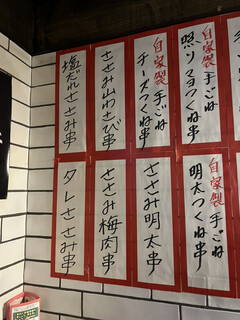 自家製 手ごね
照りマヨつくね串
自家製 手ごね
チーズつくね串
ささみ山わさび串
塩だれささみ串
自家製 手ごね
明太つくね串
ささみ明太串
ささみ梅肉串
タレささみ串